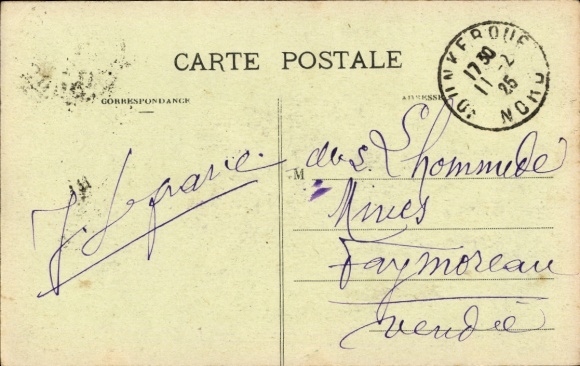 CARTE POSTALE
CORRESPONDANCE
ADRESSE
DUNKERQUE
17 30
11 - 2
25
NORD
M
Lhommede
Mines
Faymoreau
Vendée